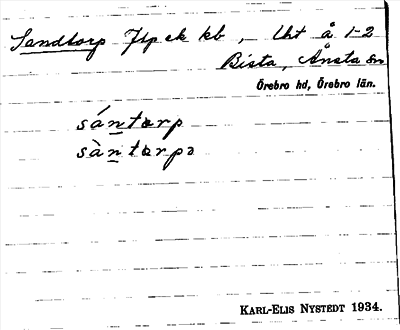 Sandtorp Jtp ek kb, Uht å 1-2
Bista, Ånsta sn
Örebro hd, Örebro län.
sántorp
sàntorpə
KARL-ELIS NYSTEDT 1934.